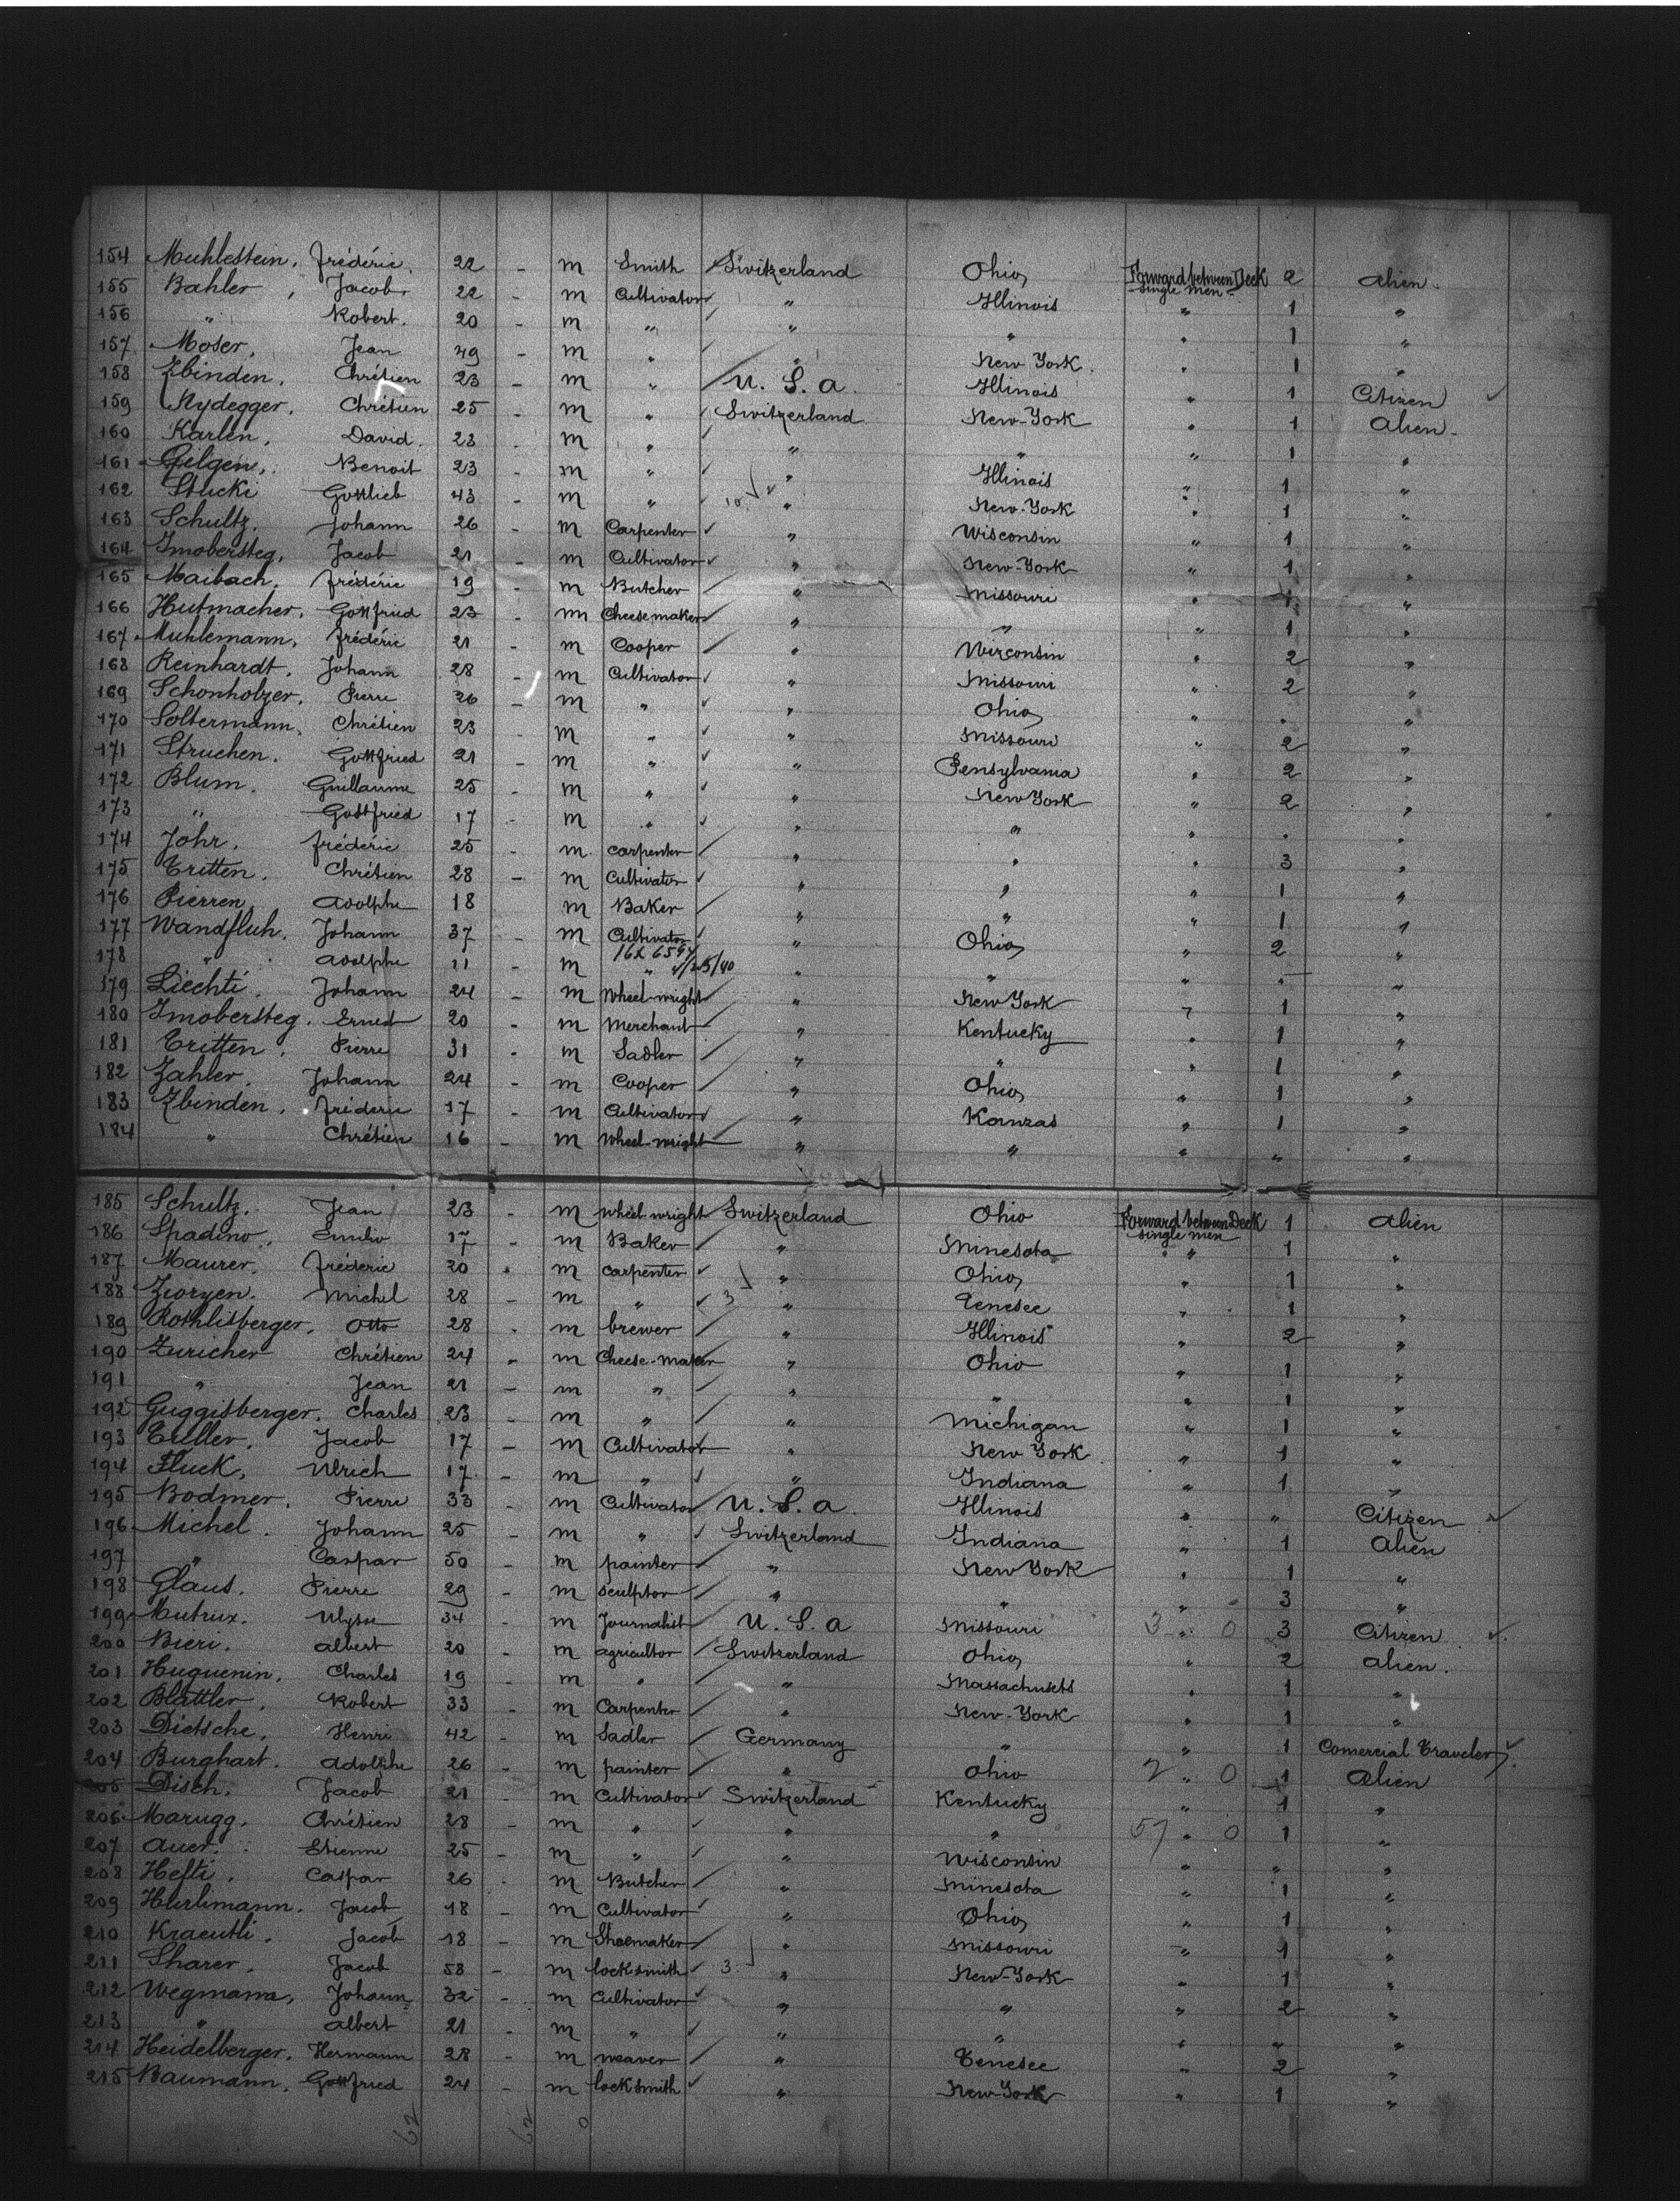 154 Muhlestein, Frédéric. 22 - m Smith Switzerland Ohio Forward between Deck single men 2 Alien.
155 Bahler, Jacob 22 - m Cultivator " Illinois " 1 "
156 " Robert. 20 - m " " " " 1 "
157 Moser, Jean 49 - m " " New York " 1 "
158 Zbinden, Chrétien 23 - m " U. S. A. Illinois " 1 Citizen
159 Nydegger, Chrétien 25 - m " Switzerland New-York " 1 Alien.
160 Karlen, David. 23 - m " " " " 1 "
161 Gilgen, Benoit 23 - m " " Illinois " 1 "
162 Stucki Gottlieb 43 - m " 10 " New-York " 1 "
163 Schultz. Johann 26 - m Carpenter " Wisconsin " 1 "
164 Imobersteg, Jacob 21 - m Cultivator " New-York " 1 "
165 Maibach, Frédéric 19 - m Butcher " Missouri " 1 "
166 Hutmacher, Gottfried 23 - m Cheese maker " " " 1 "
167 Muhlemann, Frédéric 21 - m Cooper " Wirconsin " 2 "
168 Reinhardt, Johann 28 - m Cultivator " Missouri " 2 "
169 Schonholzer, Pierre 26 - m " " Ohio " " "
170 Soltermann, Chrétien 23 - m " " Missouri " 2 "
171 Struchen. Gottfried 21 - m " " Pensylvania " 2 "
172 Blum. Guillaume 25 - m " " New York " 2 "
173 " Gottfried 17 - m " " " " " "
174 Johr. Frédéric 25 - m carpenter " " " 3 "
175 Tritten. Chrétien 28 - m Cultivator " " " 1 "
176 Pierren, Adolphe 18 m Baker " " " 1 "
177 Wandfluh. Johann 37 - m Cultivator " Ohio " 2 "
178 " Adolphe 11 - m " " " " " "
179 Liechti. Johann 24 - m Wheel-wright " New York " 1 "
180 Imobersteg. Ernest 20 - m Merchant " Kentucky " 1 "
181 Tritten. Pierre 31 - m Sadler " " " 1 "
182 Zahler. Johann 24 - m Cooper " Ohio " 1 "
183 Zbinden. Fréderic 17 - m Cultivator " Kanzas " 1 "
184 " Chrétien 16 - m Wheel-wright " " " " "
185 Schultz. Jean 23 - m wheel wright Switzerland Ohio Forward between Deck single men 1 Alien
186 Spadino, Emilio 17 - m Baker " Minesota " 1 "
187 Maurer, Fréderic 20 - m carpenter " Ohio " 1 "
188 Zioryen. Michel 28 - m " 3 " Tenesee " 1 "
189 Rothlisberger, Otto 28 - m brewer " Illinois " 2 "
190 Zuricher Chrétien 24 - m Cheese-maker " Ohio " 1 "
191 " Jean 21 - m " " " " 1 "
192 Guggisberger. Charles 23 - m " " Michigan " 1 "
193 Tuller, Jacob 17 - m Cultivator " New York " 1 "
194 Fluck, Ulrich 17. - m " " Indiana " 1 "
195 Bodmer, Pierre 33 - m Cultivator U. S. A. Illinois " " Citizen
196 Michel. Johann 25 - m " Switzerland Indiana " 1 Alien
197 " Caspar 50 - m painter " New York " 1 "
198 Glaus. Pierre 29 - m sculptor " " " 3 "
199 Mutrux. Ulysse 34 - m Journalist U. S. A Missouri 3 " 0 3 Citizen
200 Bieri. Albert 20 - m agricultor Switzerland Ohio " 2 alien.
201 Huguenin, Charles 19 - m " " Massachusets " 1 "
202 Blattler, Robert 33 - m Carpenter " New-York " 1 "
203 Dietsche, Henri 42 - m Sadler Germany " " 1 Comercial Traveler
204 Burghart. Adolphe 26 - m painter " Ohio 2 " 0 1 Alien
205 Disch. Jacob 21 - m Cultivator Switzerland Kentucky " 1 "
206 Marugg. Chrétien 28 - m " " " 57 " 0 1 "
207 Auer. Etienne 25 - m " " Wisconsin " " "
208 Hefti, Caspar 26 - m Butcher " Minesota " 1 "
209 Hurlimann. Jacob 18 - m Cultivator " Ohio " 1 "
210 Kraeutli. Jacob 18 - m Shoemaker " Missouri " 1 "
211 Sharer, Jacob 58 - m locksmith 3 " New-York " 1 "
212 Wegmann, Johann 32 - m Cultivator " " " 2 "
213 " Albert 21 - m " " " " " "
214 Heidelberger. Hermann 28 - m weaver " Tenesee " 2 "
215 Baumann, Gottfried 24 - m locksmith " New-York " 1 "
62 62 0